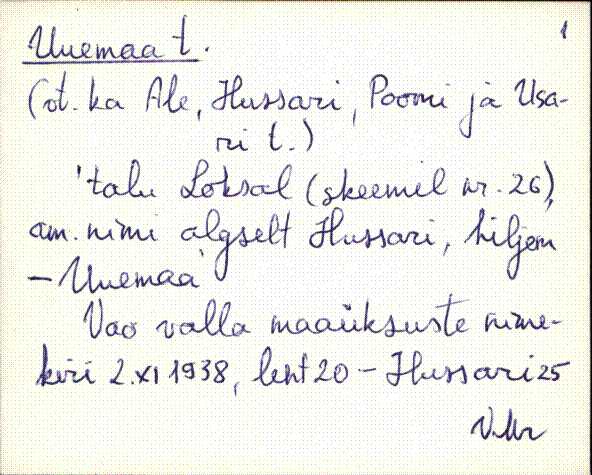 1
Uuemaa t.
(vt. ka Ale, Hussari, Poomi ja Usa-
ri t.)
'talu Loksal (skeemil nr. 26),
am. nimi algselt Hussari, hiljem
– Uuemaa'
Vao valla maaüksuste nime-
kiri 2.XI 1938, leht 20 – Hussari 25